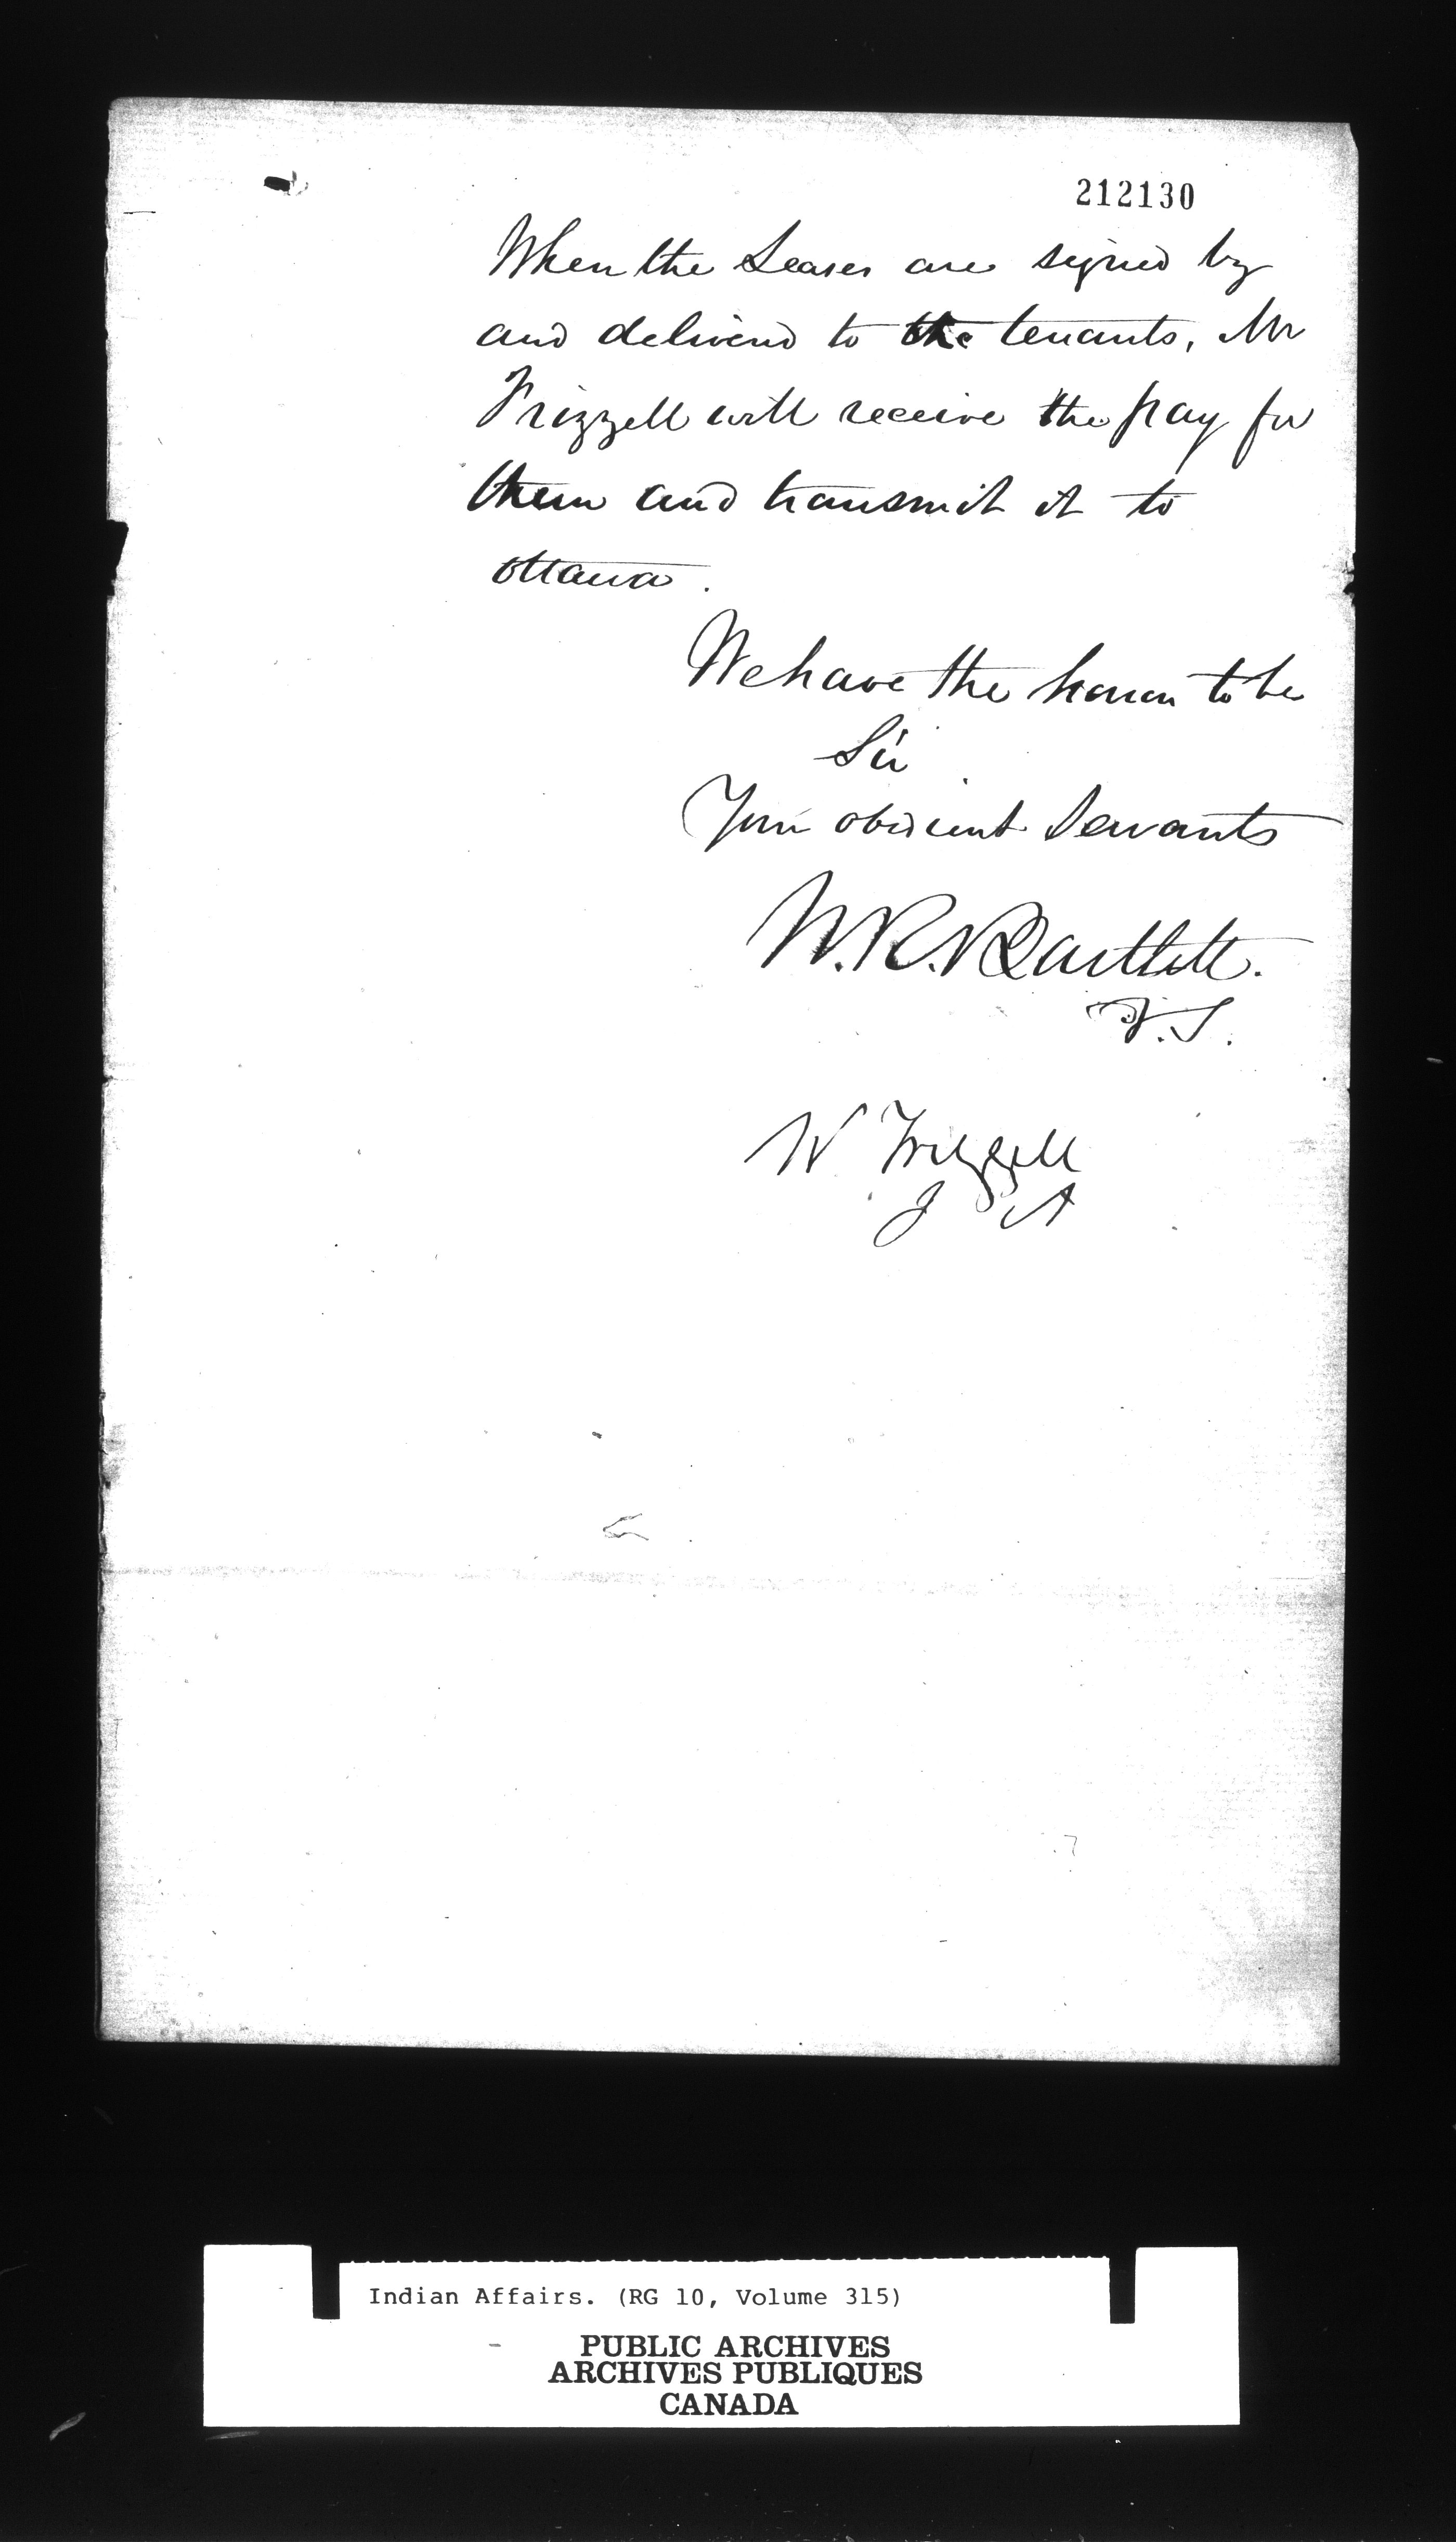 212130
When the Leases are signed by
and delivered to the tenants, Mr
Frizzell will receive the pay for
them and transmit it to
Ottawa.
We have the honor to be
Sir
Your obedient Servants
W. R. Bartlett.
W Frizzell
J A
Indian Affairs. (RG 10, Volume 315)
PUBLIC ARCHIVES
ARCHIVES PUBLIQUES
CANADA